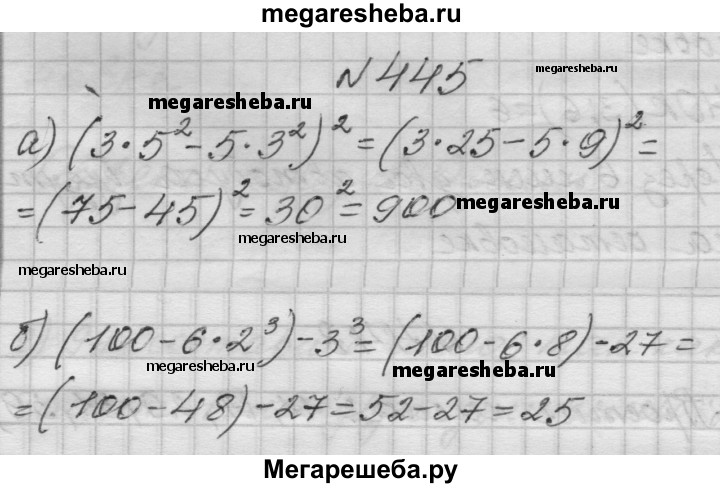 megaresheba.ru
№ 445
megaresheba.ru
megaresheba.ru
а) (3·5²-5·3²)² = (3·25-5·9)² =
= (75-45)² = 30² = 900
megaresheba.ru
megaresheba.ru
megaresheba.ru
б) (100-6·2³)-3³ = (100-6·8)-27 =
megaresheba.ru
megaresheba.ru
= (100-48)-27 = 52-27 = 25
Мегарешеба.ру